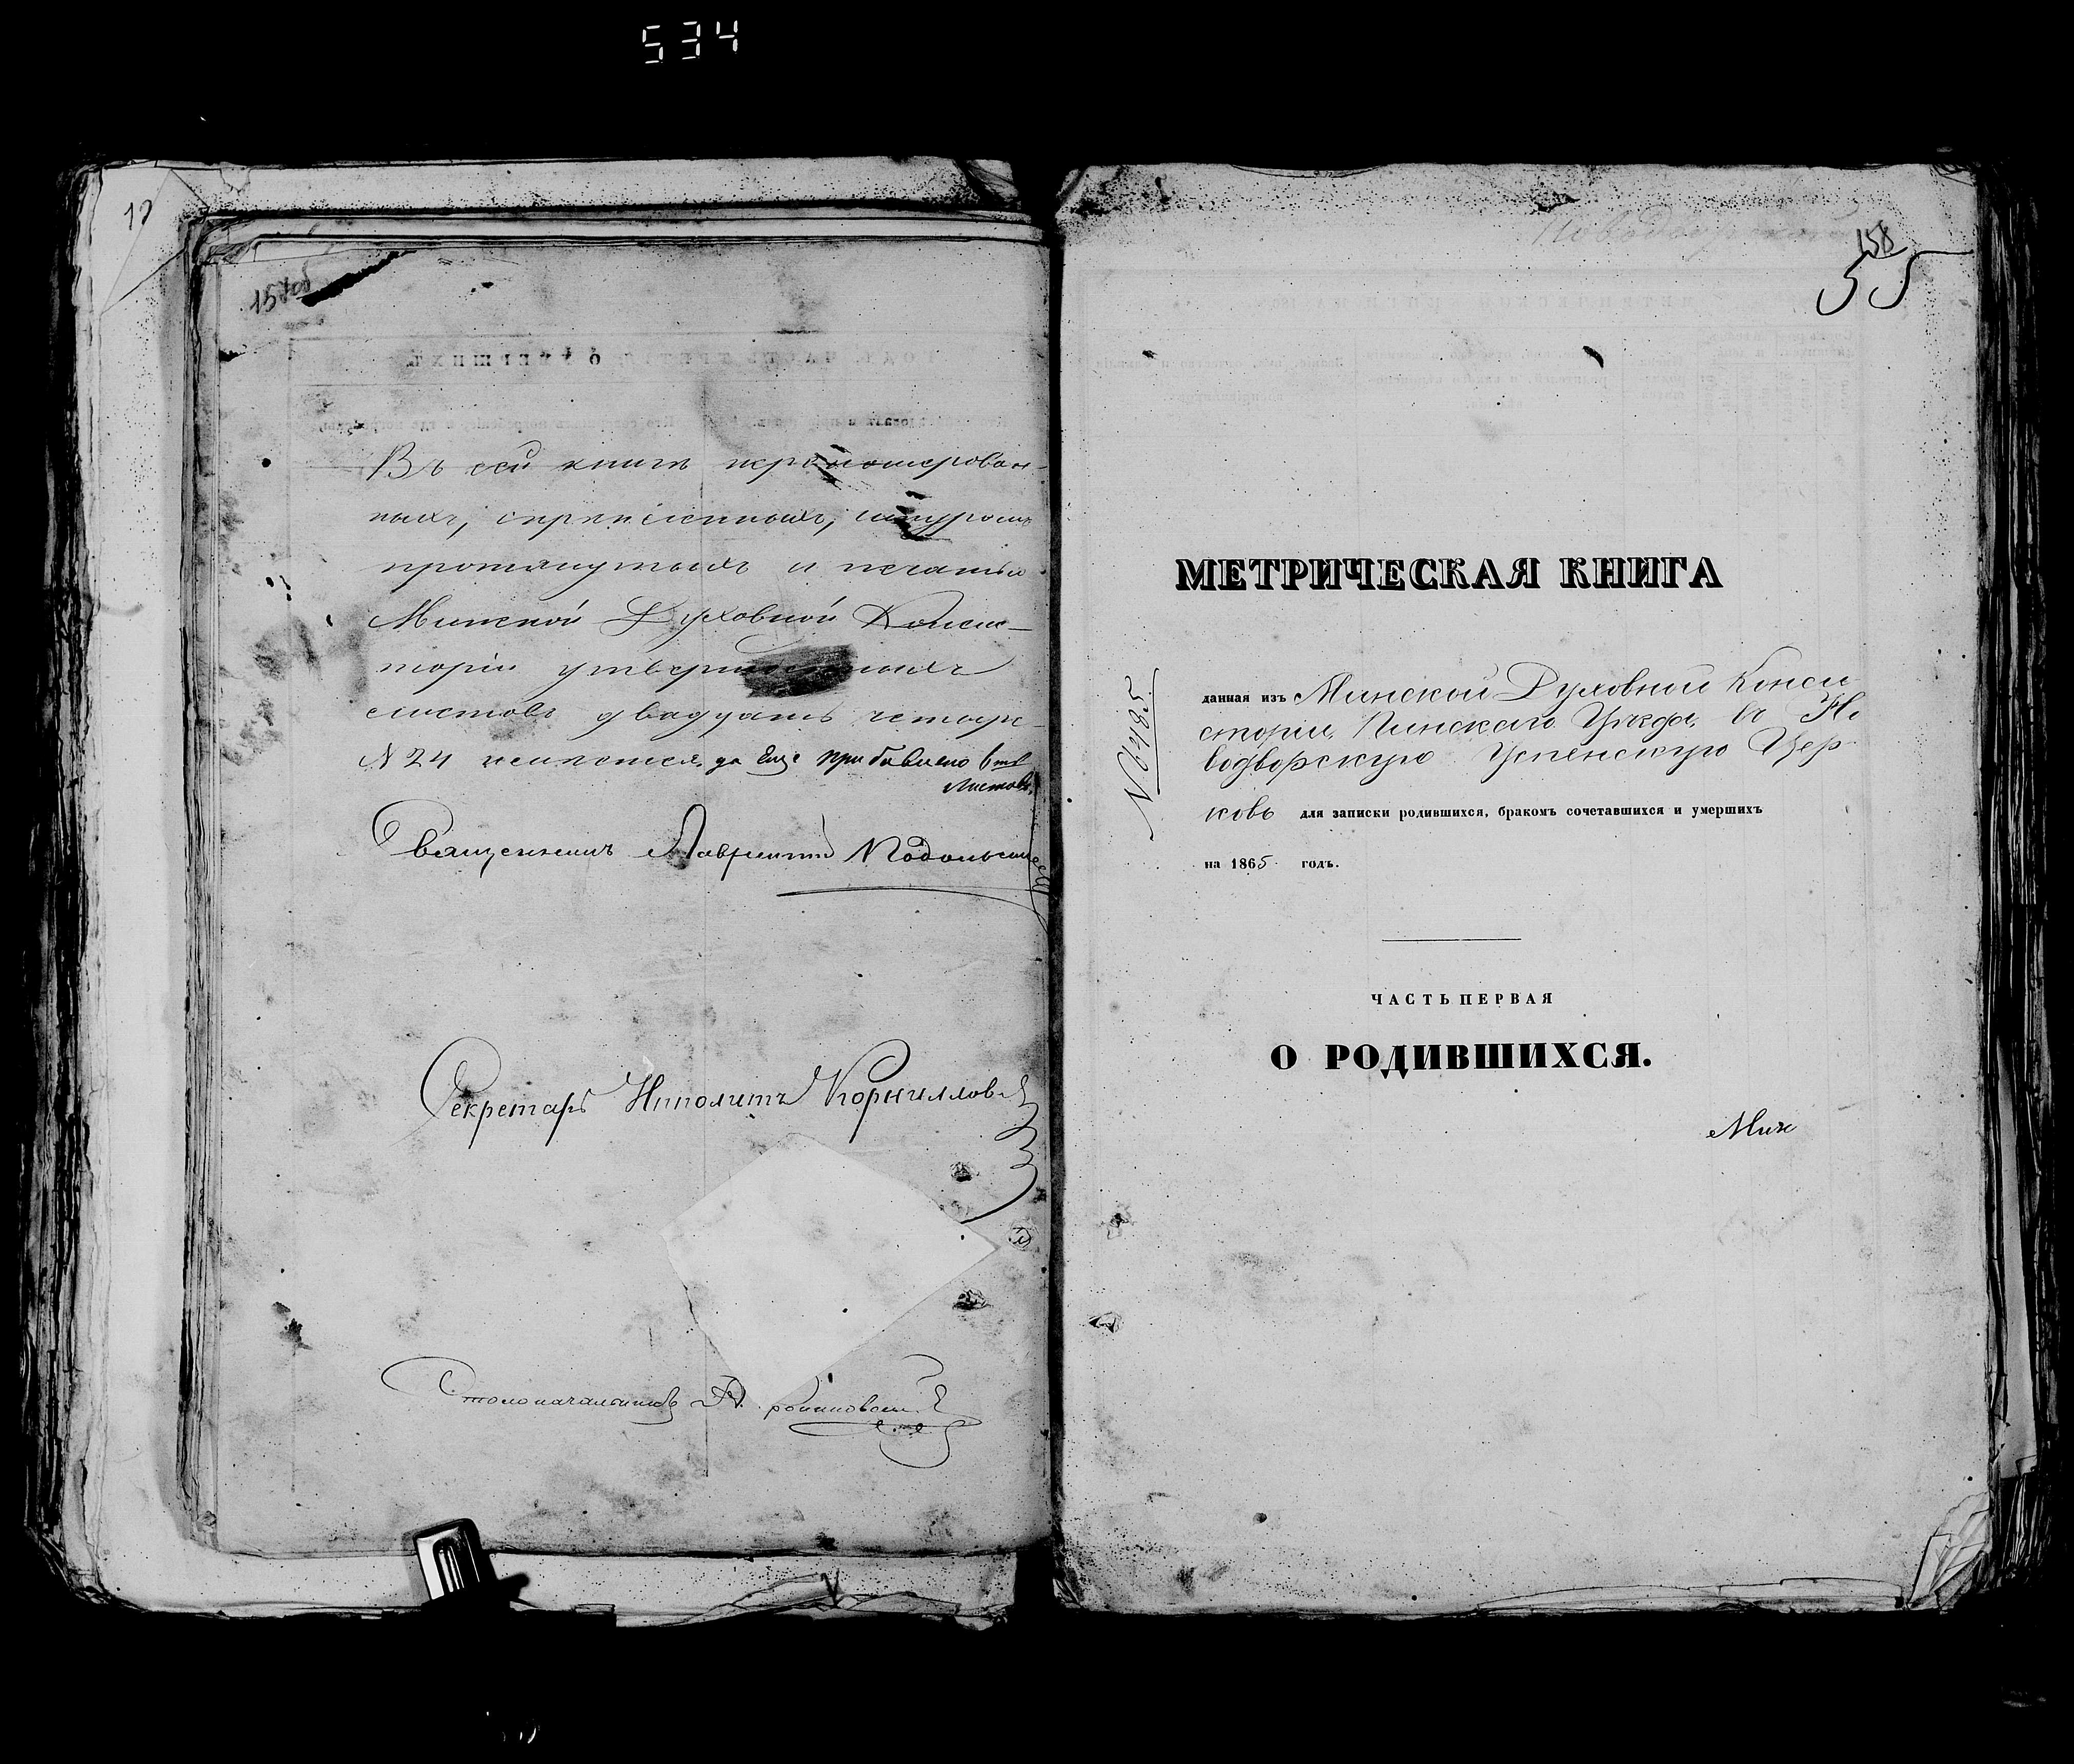 534
12
157об
Въ сей книгѣ перенумерован-
ныхъ, скрѣпленныхъ, шнуромъ
протянутыхъ и печатью
Минской Духовной Конси-
торіи утвержденныхъ
листовъ двадцать четыре
№ 24 имѣется, да еще прибавлено
листовъ.
Священникъ Лаврентій Подольскій
Секретарь Ипполитъ Корниллов
Столоначальникъ
158
55
МЕТРИЧЕСКАЯ КНИГА
№ 6485.
данная изъ Минской Духовной Конси
сторіи, Пинскаго Уѣзда, въ Но
водворскую Успенскую Цер
ковь для записки родившихся, бракомъ сочетавшихся и умершихъ
на 1865 годъ.
ЧАСТЬ ПЕРВАЯ
О РОДИВШИХСЯ.
Мин